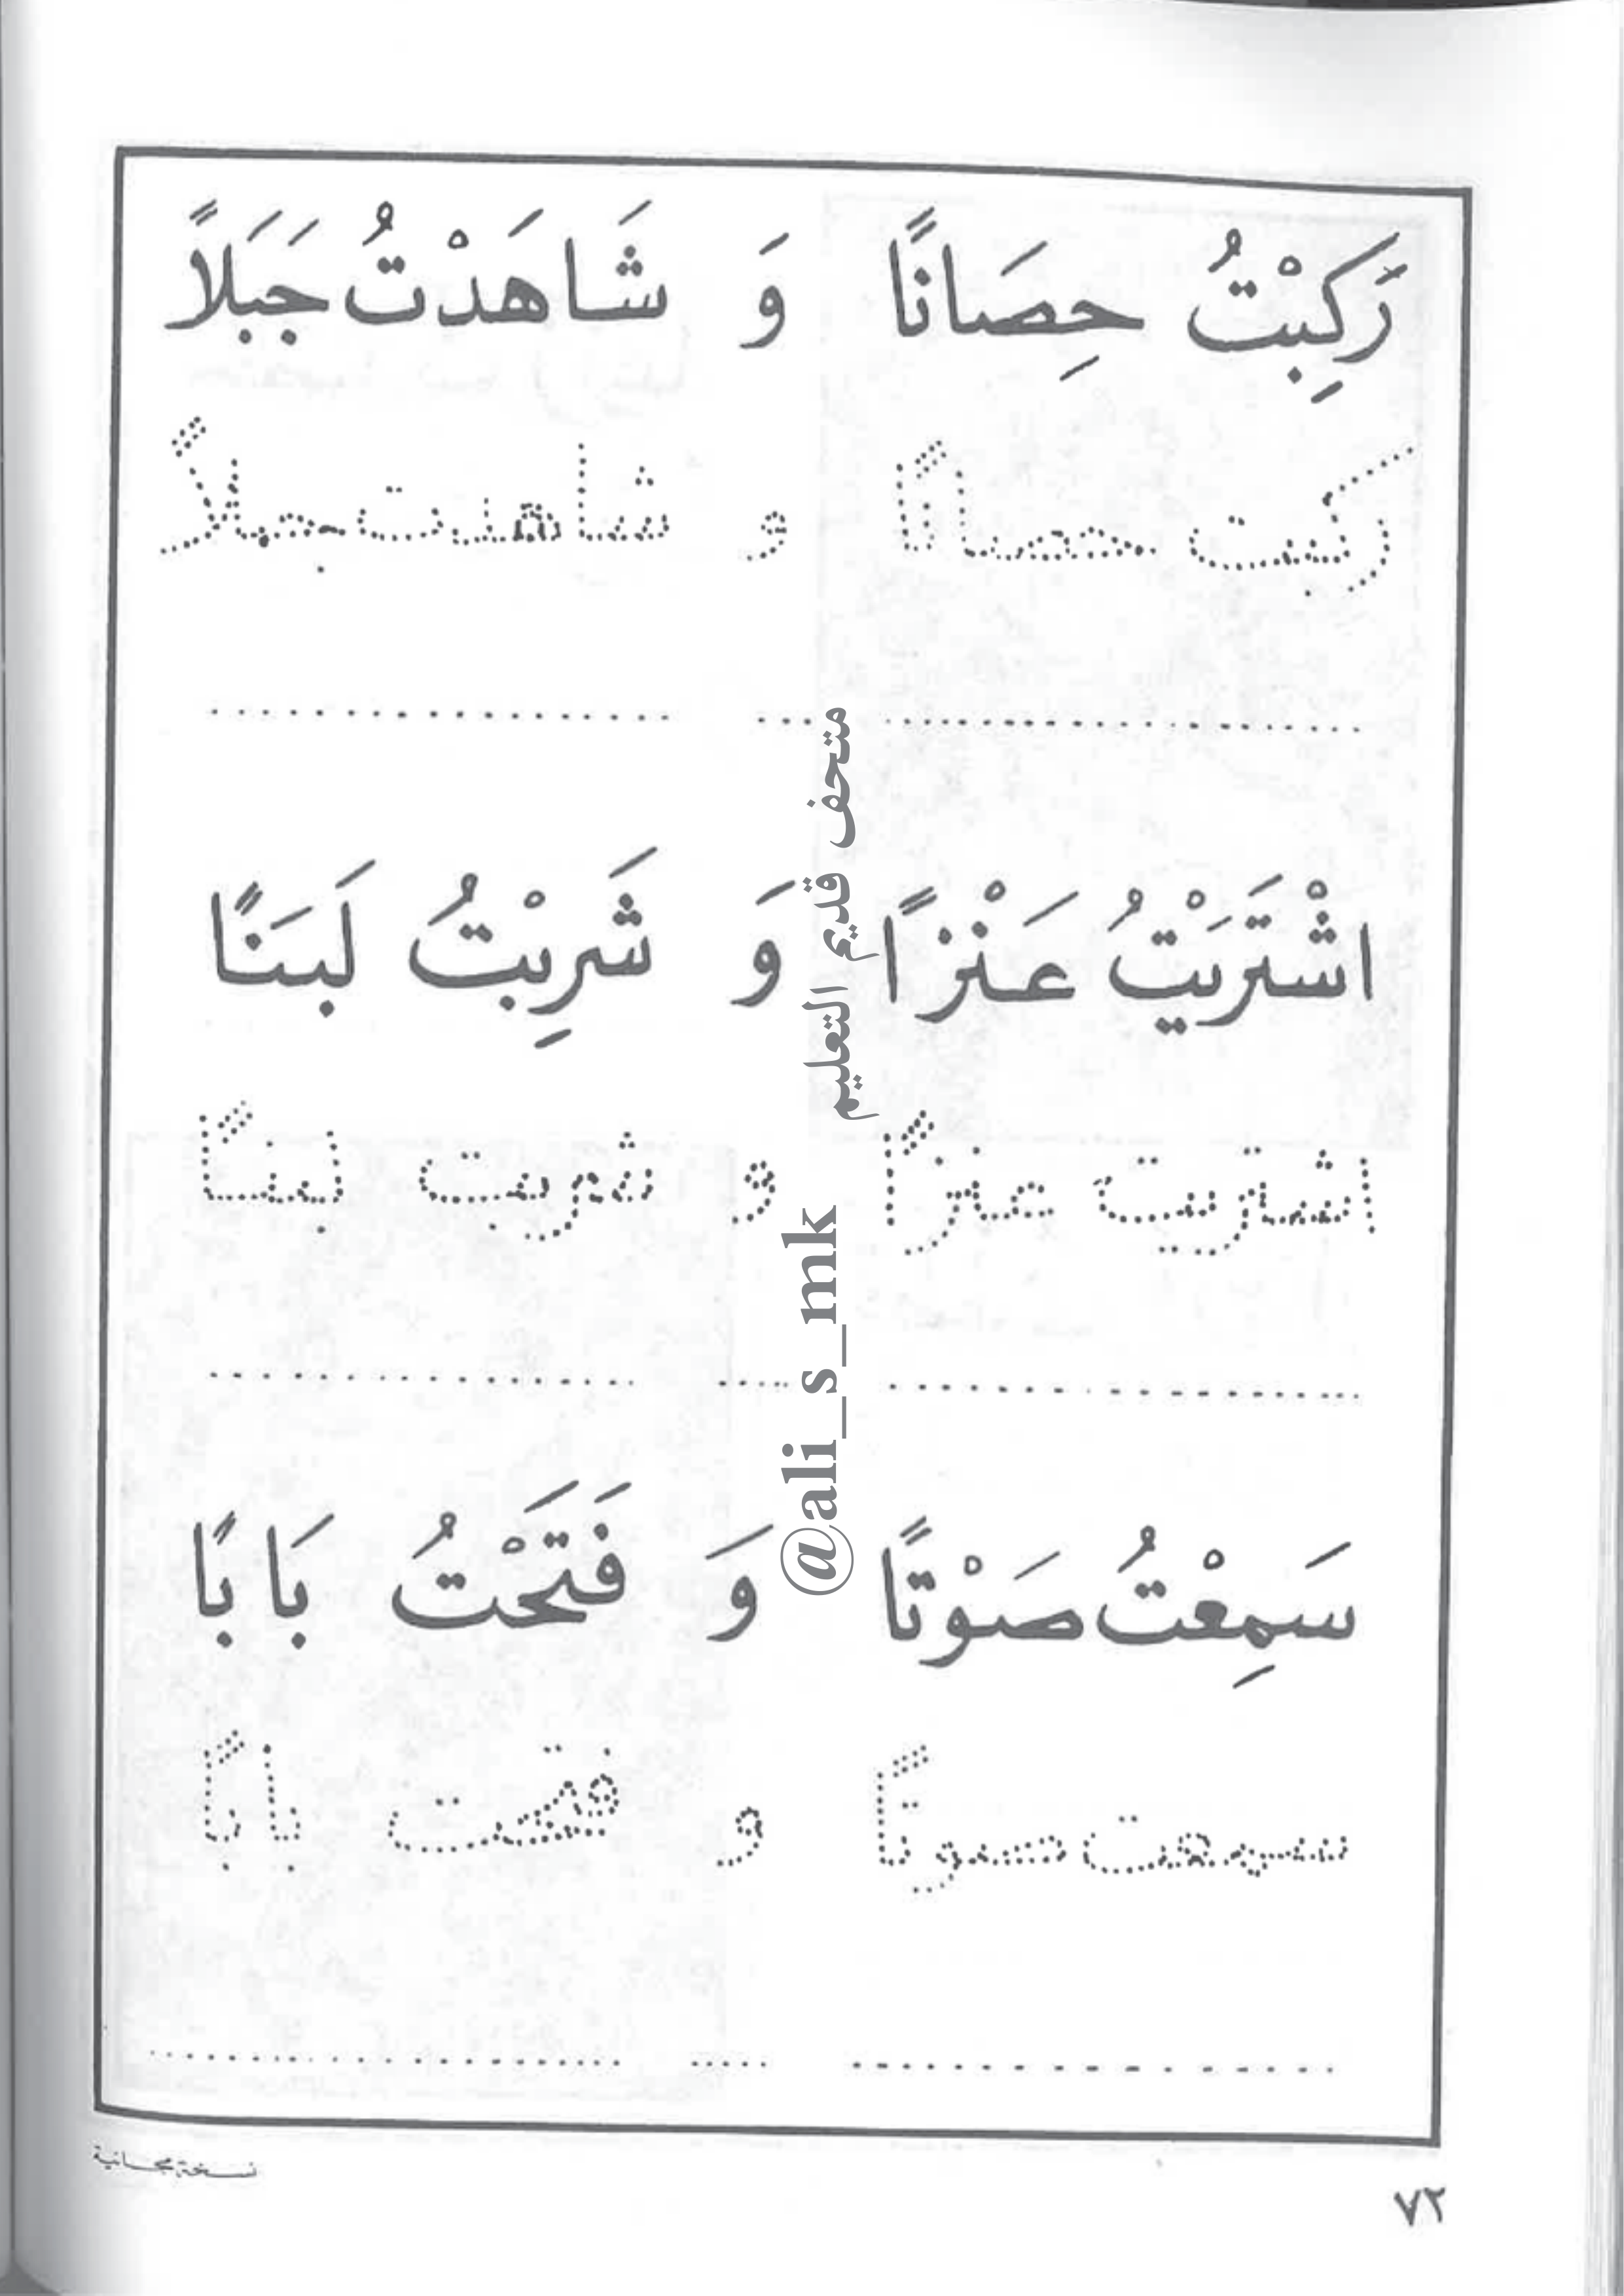 رَكِبْتُ حِصَانًا وَ شَاهَدْتُ جَبَلاً
ركبت حصانًا و شاهدت جبلاً
اشْتَرَيْتُ عَنْزًا وَ شَرِبْتُ لَبَنًا
اشتريت عنزًا و شربت لبنًا
سَمِعْتُ صَوْتًا وَ فَتَحْتُ بَابًا
سمعت صوتًا و فتحت بابًا
متحف قديم التعليم
@ali_s_mk
نسخة مجانية
٧٢